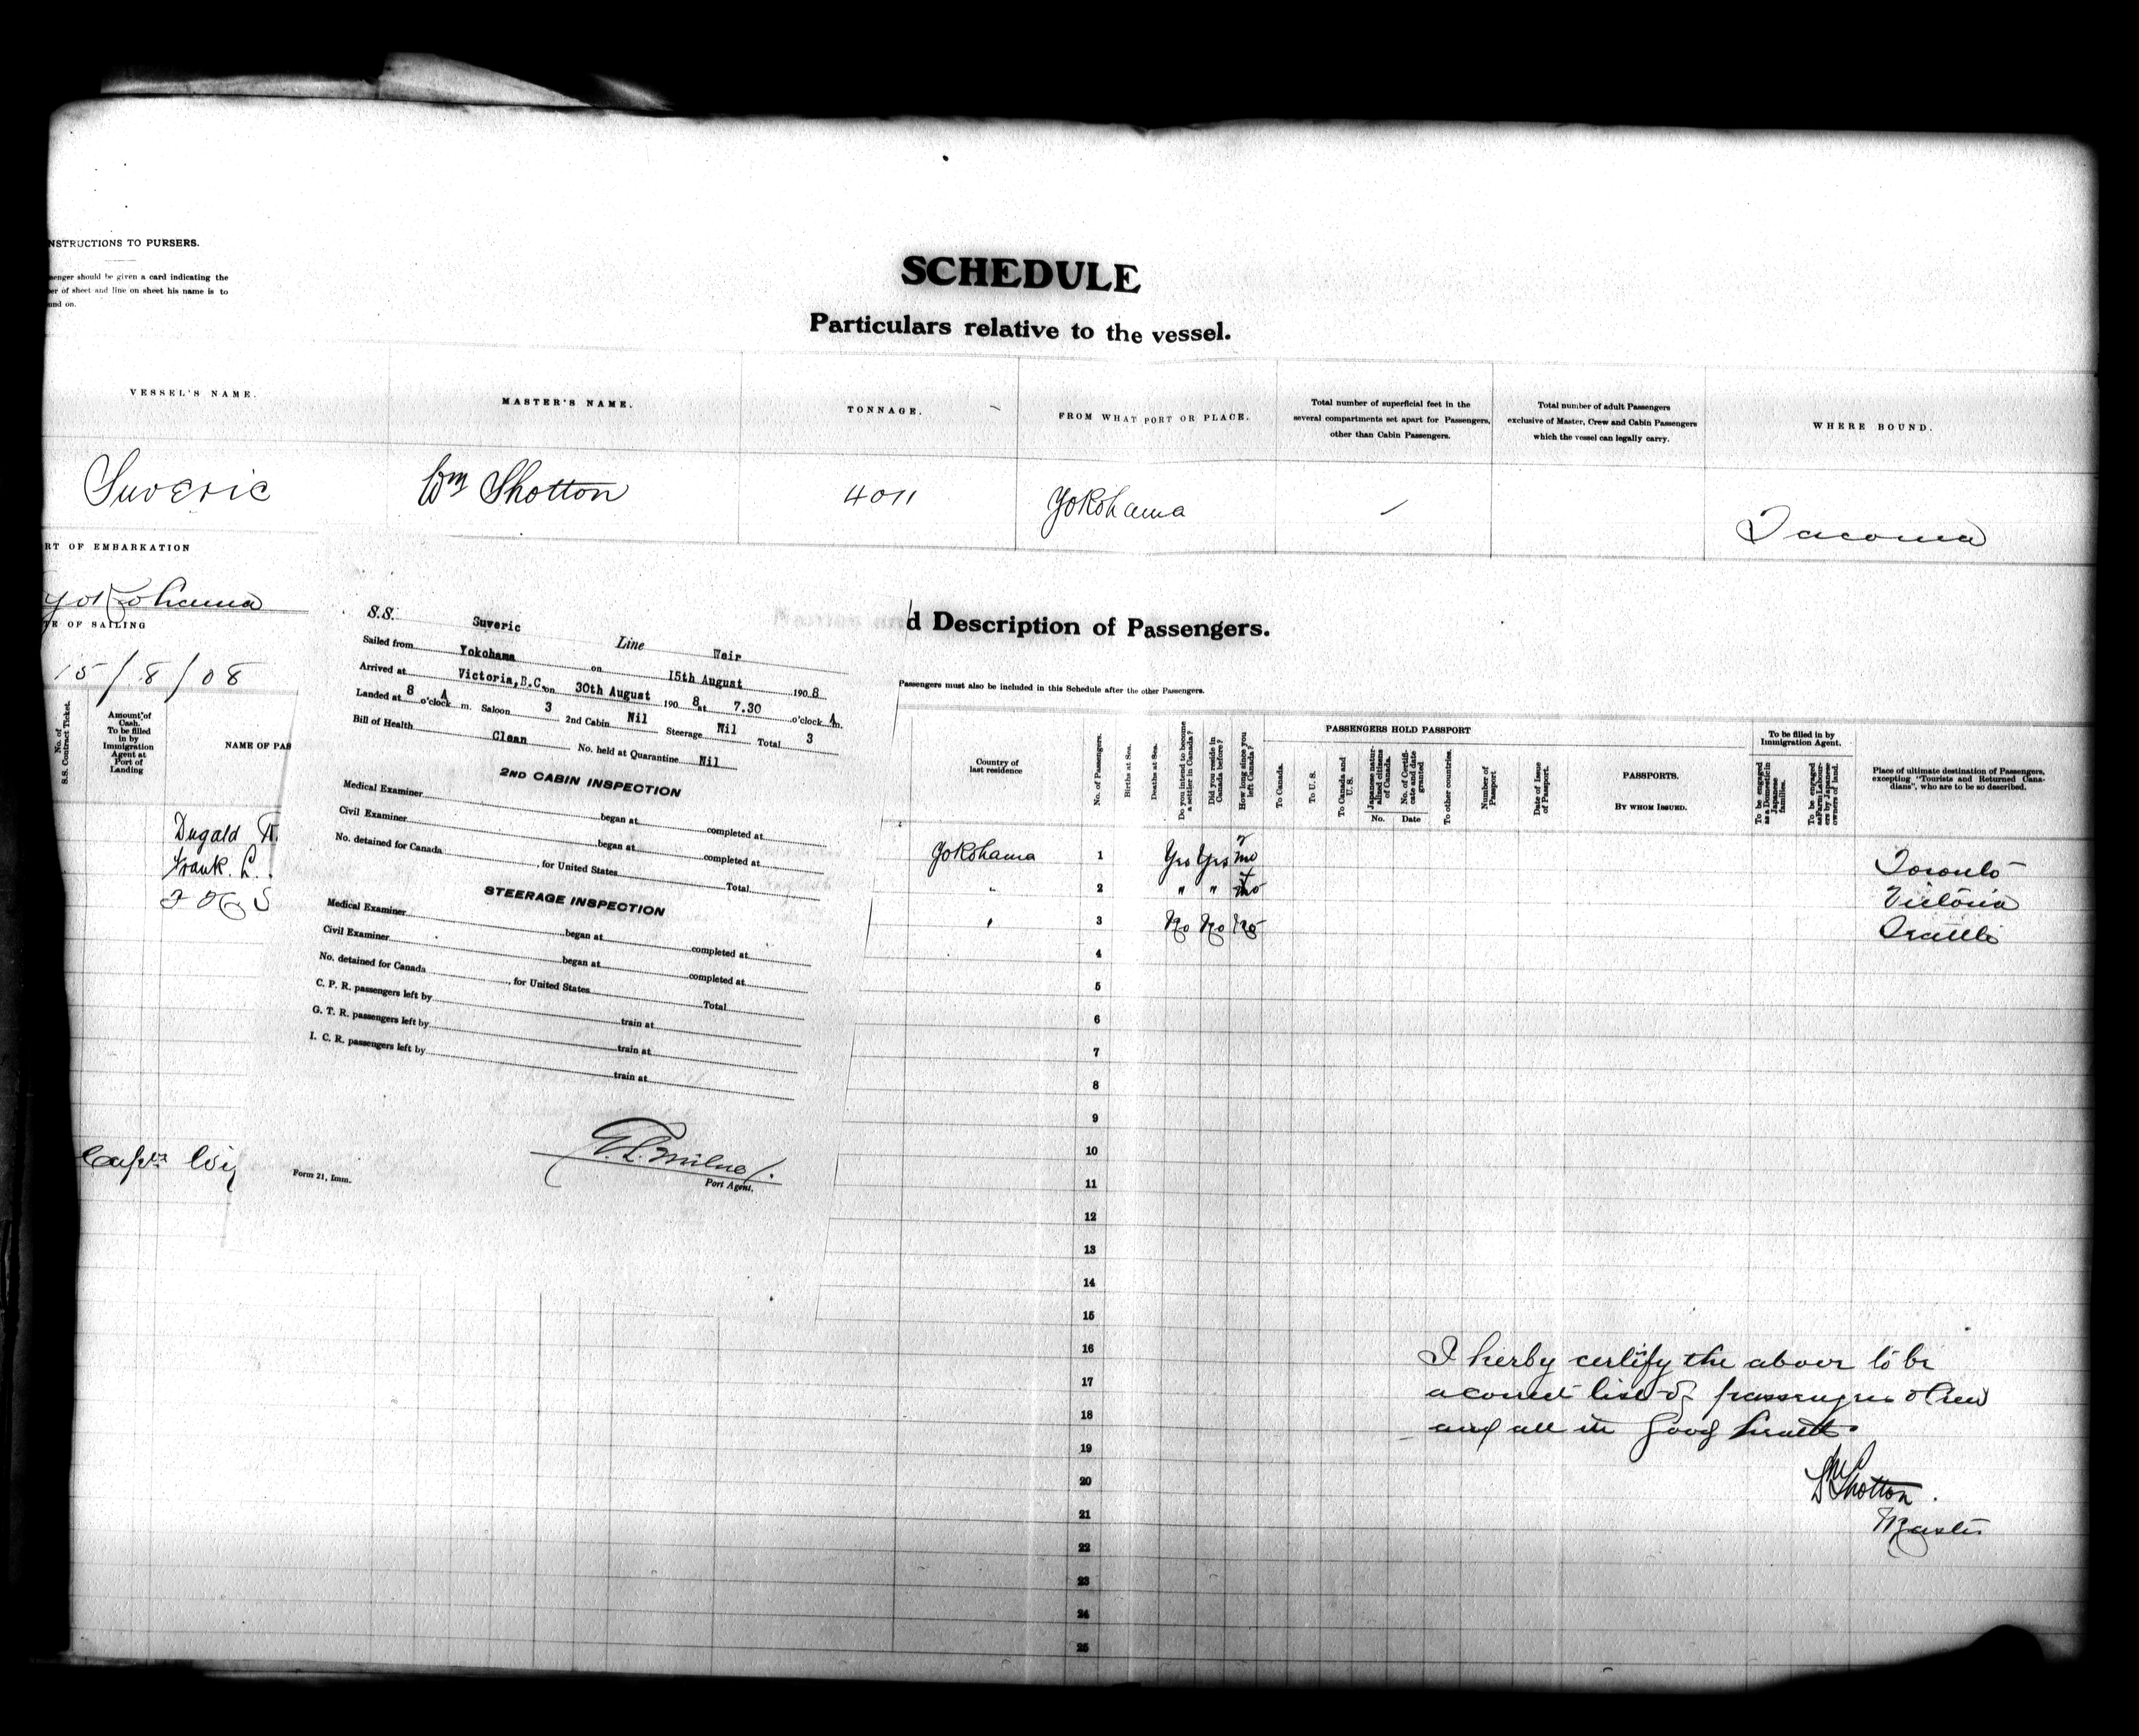 NSTRUCTIONS TO PURSERS.
senger should be given a card indicating the
er of sheet and line on sheet his name is to
und on.
SCHEDULE
Particulars relative to the vessel.
VESSEL'S NAME.
MASTER'S NAME.
TONNAGE.
FROM WHAT PORT OR PLACE.
Total number of superficial feet in the
several compartments set apart for Passengers,
other than Cabin Passengers.
Total number of adult Passengers
exclusive of Master, Crew and Cabin Passengers
which the vessel can legally carry.
WHERE BOUND.
Suveric
Wm Shotton
4011
Yokohama
Tacoma
RT OF EMBARKATION
Yokohama
TE OF SAILING
15/8/08
S.S. Suveric Line Weir
Sailed from Yokohama on 15th August 1908
Arrived at Victoria, B.C. on 30th August 1908 at 7.30 o'clock A m.
Landed at 8 o'clock A m. Saloon 3 2nd Cabin Nil Steerage Nil Total 3
Bill of Health Clean No. held at Quarantine Nil
2ND CABIN INSPECTION
Medical Examiner began at completed at
Civil Examiner began at completed at
No. detained for Canada , for United States Total
STEERAGE INSPECTION
Medical Examiner began at completed at
Civil Examiner began at completed at
No. detained for Canada , for United States Total
C. P. R. passengers left by train at
G. T. R. passengers left by train at
I. C. R. passengers left by train at
Port Agent.
Form 21, Imm.
d Description of Passengers.
Passengers must also be included in this Schedule after the other Passengers.
No. of S.S. Contract Ticket.
Amount of
Cash.
To be filled
in by
Immigration
Agent at
Port of
Landing
NAME OF PAS
Country of
last residence
No. of Passengers.
Births at Sea.
Deaths at Sea.
Do you intend to become a settler in Canada?
Did you reside in Canada before?
How long since you left Canada?
PASSENGERS HOLD PASSPORT
To Canada.
To U. S.
To Canada and U. S.
Japanese naturalized citizens of Canada.
No.
No. of Certificate and date granted
Date
To other countries.
Number of Passport
Date of Issue of Passport.
PASSPORTS.
BY WHOM ISSUED.
To be filled in by
Immigration Agent.
To be engaged as a Domestic in Japanese families.
To be engaged as Farm Laborers by Japanese owners of land.
Place of ultimate destination of Passengers,
excepting "Tourists and Returned Cana-
dians", who are to be so described.
Dugald
Frank. L.
Yokohama 1 Yes Yes mo Toronto
" 2 " " mo Victoria
" 3 No No No Seattle
4
5
6
7
8
9
10
11
12
13
14
15
16
17
18
19
20
21
22
23
24
25
I herby certify the above to be
a correct list of passengers & Crew
and all in good health.
Wm Shotton.
Master